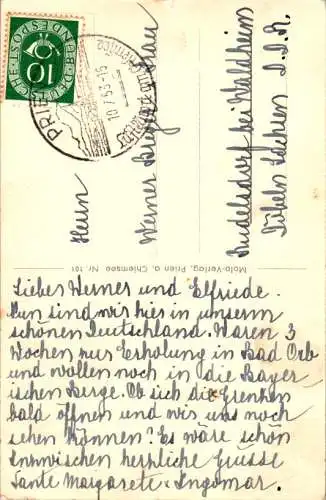 DEUTSCHE BUNDESPOST
10
PRIEN
10.7.53-15
Herrn
Werner
Rudelsdorf bei Waldheim
Döbeln Sachsen D.D.R.
Molo-Verlag, Prien a. Chiemsee Nr. 101
Lieber Werner und Elfriede.
Nun sind wir hier in unserm
schönen Deutschland. Waren 3
Wochen zur Erholung in Bad Orb
und wollen noch in die Bayer
ischen Berge. Ob sich die Grenzen
bald öffnen und wir uns noch
sehen können? Es wäre schön
Inzwischen herzliche Grüsse
Tante Margarete + Ingomar.